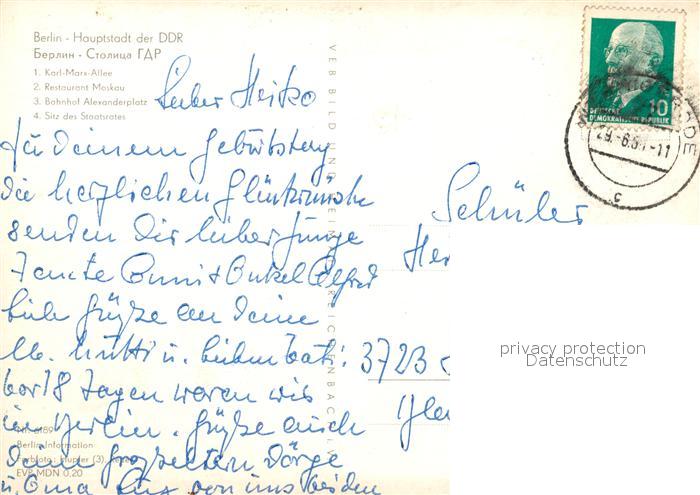 Berlin - Hauptstadt der DDR
Берлин - Столица ГДР
1. Karl-Marx-Allee
2. Restaurant Moskau
3. Bahnhof Alexanderplatz
4. Sitz des Staatsrates
Lieber Heiko
Zu Deinem Geburtstag
die herzlichen Glückwünsche
senden Dir lieber Junge
Tante Anni + Onkel Alfred
Viele Grüße an Deine
lb. Mutti u. lieben Vati:
vor 18 Tagen waren wir
in Berlin. Grüße auch
Deine Großeltern
u. Oma von uns beiden
Berlin-Information
EVP MDN 0,20
VEB BILD UND HEIMAT REICHENBACH I. V.
DEUTSCHE
DEMOKRATISCHE REPUBLIK
10
29.-6.6 -11
c
Schüler
3723
privacy protection
Datenschutz